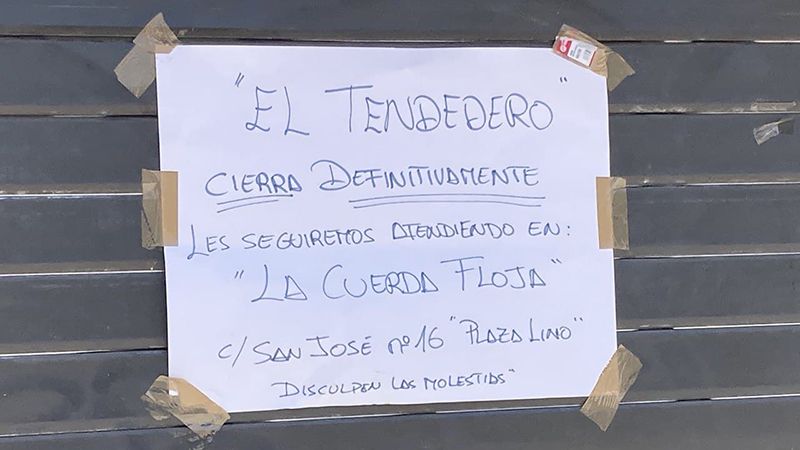 "EL TENDEDERO"
CIERRA DEFINITIVAMENTE
LES SEGUIREMOS ATENDIENDO EN:
"LA CUERDA FLOJA"
C/ SAN JOSÉ nº 16 "PLAZA LINO"
DISCULPEN LAS MOLESTIAS"